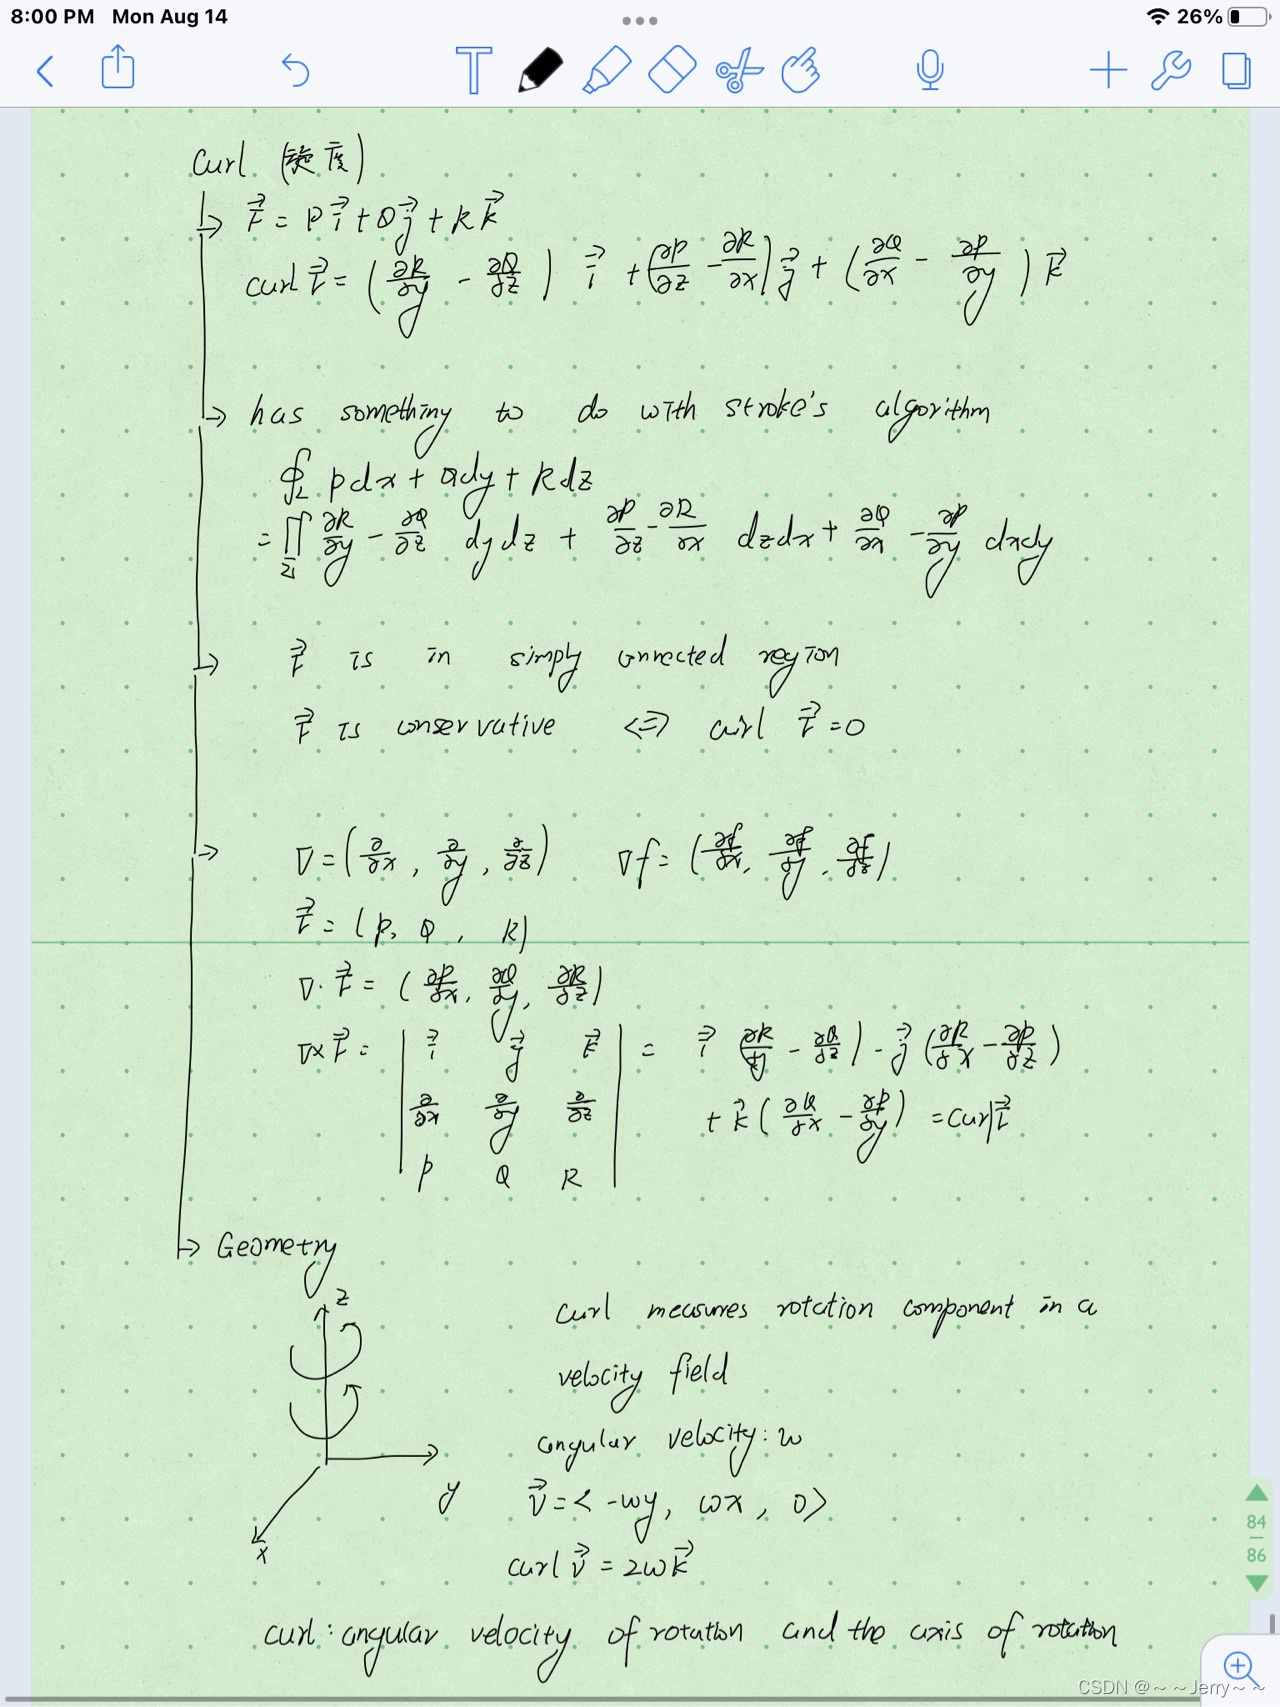 8:00 PM Mon Aug 14
26%
T
Curl (旋度)
→ F⃗ = P i⃗ + Q j⃗ + R k⃗
curl F⃗ = (∂R/∂y - ∂Q/∂z) i⃗ + (∂P/∂z - ∂R/∂x) j⃗ + (∂Q/∂x - ∂P/∂y) k⃗
→ has something to do with stroke's algorithm
∮_L Pdx + Qdy + Rdz
= ∬_Σ ∂R/∂y - ∂Q/∂z dydz + ∂P/∂z - ∂R/∂x dzdx + ∂Q/∂x - ∂P/∂y dxdy
→ F⃗ is in simply connected region
F⃗ is conservative <=> curl F⃗ = 0
→ ∇ = (∂/∂x, ∂/∂y, ∂/∂z) ∇f = (∂f/∂x, ∂f/∂y, ∂f/∂z)
F⃗ = (P, Q, R)
∇· F⃗ = (∂P/∂x, ∂Q/∂y, ∂R/∂z)
∇×F⃗ = | i⃗ j⃗ k⃗ | = i⃗ (∂R/∂y - ∂Q/∂z) - j⃗ (∂R/∂x - ∂P/∂z)
∂/∂x ∂/∂y ∂/∂z + k⃗ (∂Q/∂x - ∂P/∂y) = curl F⃗
P Q R
→ Geometry
z
y
x
curl measures rotation component in a
velocity field
angular velocity: w
v⃗ = < -wy, wx, 0>
curl v⃗ = 2w k⃗
curl: angular velocity of rotation and the axis of rotation
84
86
CSDN @~~Jerry~~